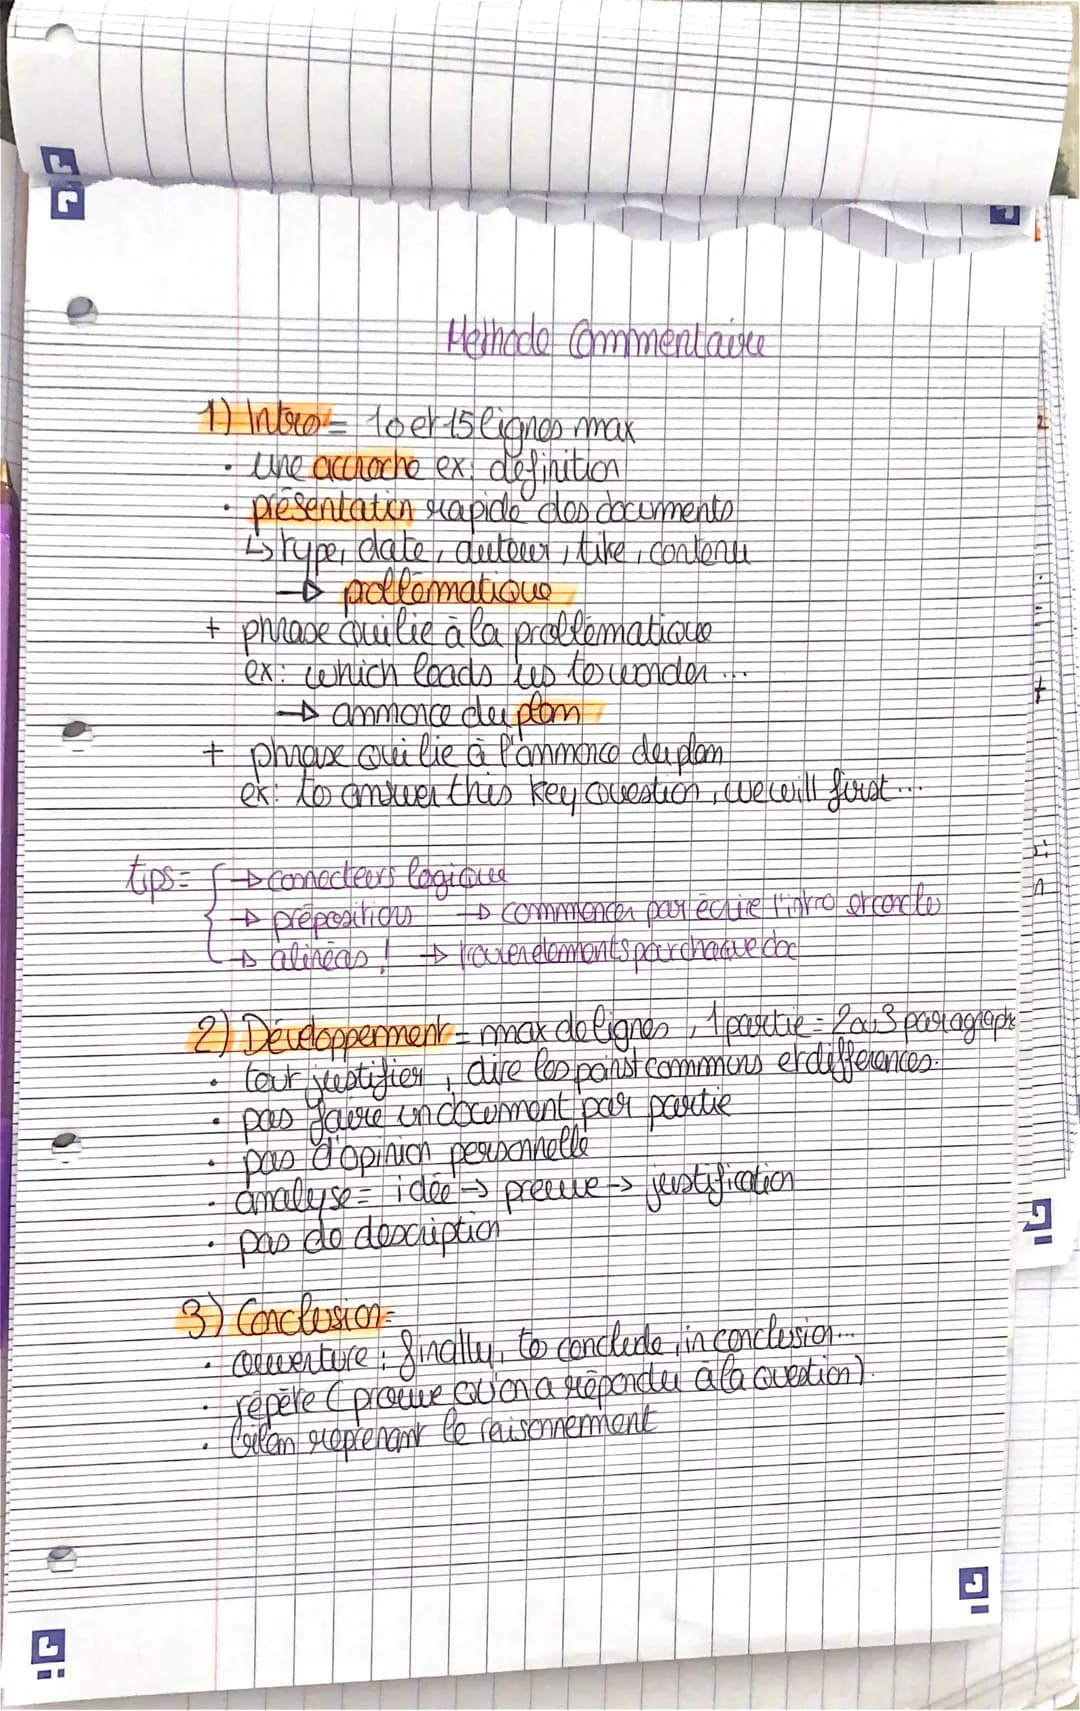 Méthode Commentaire
1) Intro = 10 et 15 lignes max
· une accroche ex: définition
· présentation rapide des documents
↳ type, date, auteur, titre, contenu
→ problématique
+ phrase qui lie à la problématique
ex: which leads us to wonder ...
→ annonce du plan
+ phrase qui lie à l'annonce du plan
ex: to answer this key question, we will first ...
tips = { → connecteurs logique
→ prépositions → commencer par écrire l'intro et conclu
→ alinéas ! → elements pour chaque doc
2) Développement = max de lignes, 1 partie = 2 ou 3 paragraphe
· tout justifier, dire les points communs et differences.
· pas faire un document par partie
· pas d'opinion personnelle
· analyse = idée → preuve → justification
· pas de description
3) Conclusion =
· ouverture : finally, to conclude, in conclusion...
· répète (prouve qu'on a répondu à la question).
· bilan reprenant le raisonnement